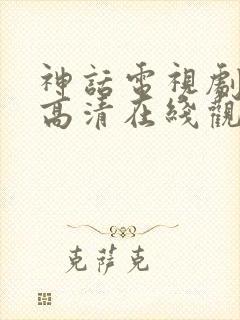 神話電視劇
高清在綫觀
克薩克